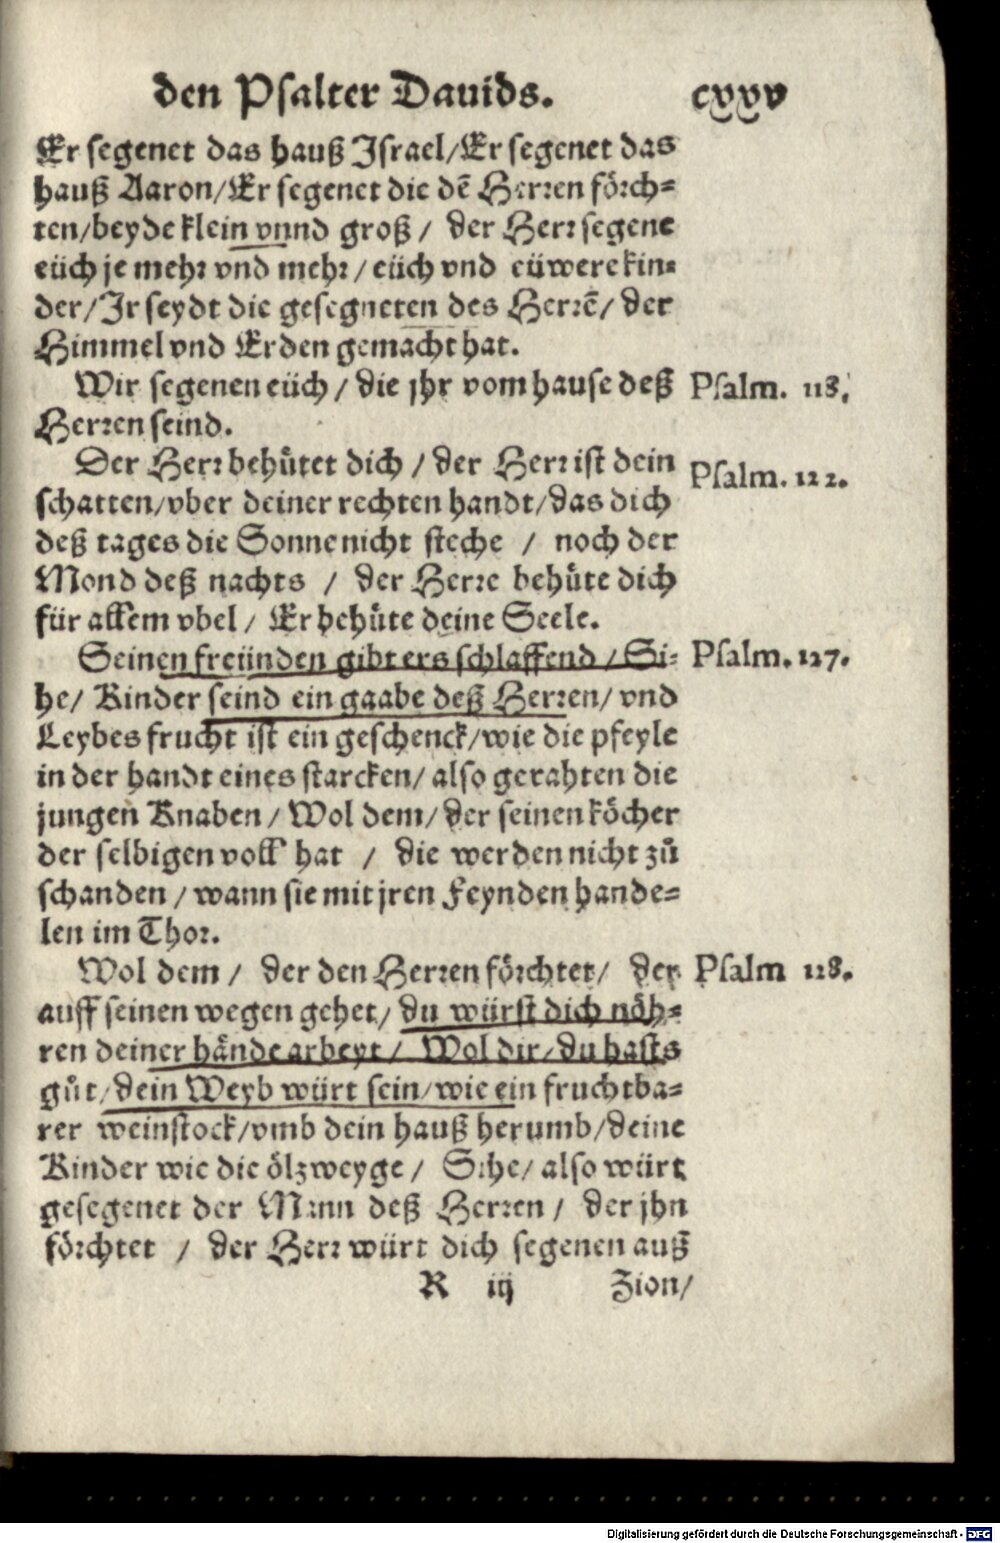 den Psalter Dauids. cxxv
Er segenet das hauß Israel/Er segenet das
hauß Aaron/Er segenet die dē Herren förch-
ten/beyde klein vnnd groß / der Herr segene
eüch je mehr vnd mehr/ eüch vnd eüwere kin-
der/Ir seydt die gesegneten des Herrē/ der
Himmel vnd Erden gemacht hat.
Wir segenen eüch / die jhr vom hause deß Psalm. 118.
Herren seind.
Der Herr behůtet dich / der Herr ist dein Psalm. 122.
schatten/vber deiner rechten handt/das dich
deß tages die Sonne nicht steche / noch der
Mond deß nachts / der Herre behůte dich
für allem vbel / Er behůte deine Seele.
Seinen freünden gibt ers schlaffend / Si- Psalm. 127.
he/ Kinder seind ein gaabe deß Herren/ vnd
Leybes frucht ist ein geschenck/wie die pfeyle
in der handt eines starcken/ also gerahten die
jungen Knaben / Wol dem/ der seinen köcher
der selbigen voll hat / die werden nicht zů
schanden / wann sie mit jren Feynden hande-
len im Thor.
Wol dem / der den Herren förchtet/ der Psalm 128.
auff seinen wegen gehet/ du würst dich nöh-
ren deiner hände arbeyt / Wol dir/du hasts
gůt/dein Weyb würt sein/wie ein fruchtba-
rer weinstock/vmb dein hauß herumb/deine
Kinder wie die ölzweyge / Sihe/ also würt
gesegenet der Mann deß Herren / der jhn
förchtet / der Herr würt dich segenen auß
R iij Zion/
Digitalisierung gefördert durch die Deutsche Forschungsgemeinschaft - DFG